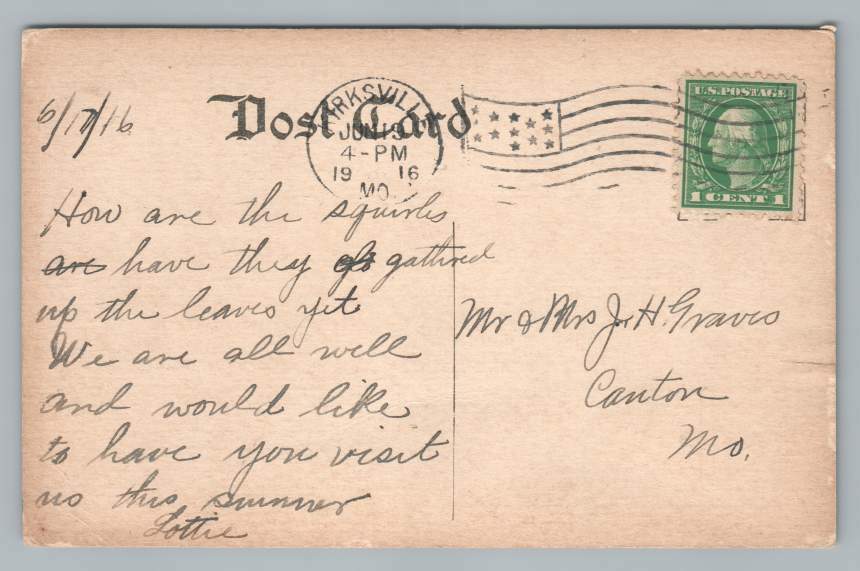 6/17/16
Post Card
RKSVILLE
JUN 19
4-PM
19 16
MO.
U.S. POSTAGE
1 CENT 1
How are the squirls
are have they gathired
up the leaves yet
We are all well
and would like
to have you visit
us this summer
Lottie
Mr & Mrs J. H. Graves
Canton
Mo.